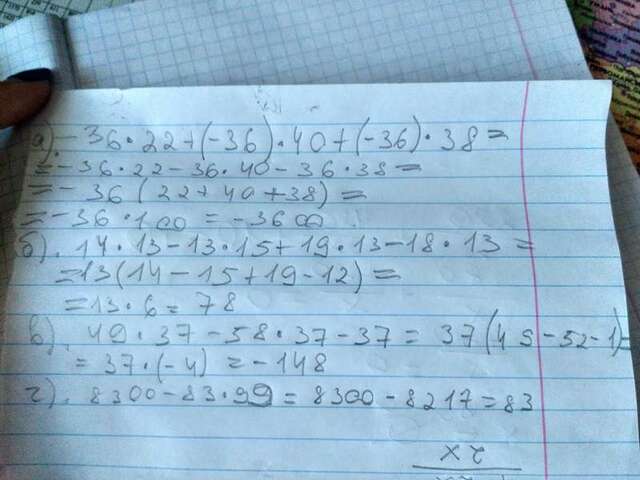 а). -36·22+(-36)·40+(-36)·38=
=-36·22-36·40-36·38=
=-36(22+40+38)=
=-36·100=-3600
б). 14·13-13·15+19·13-18·13=
=13(14-15+19-12)=
=13·6=78
в). 49·37-58·37-37=37(49-52-1)=
=37·(-4)=-148
г). 8300-83·99=8300-8217=83